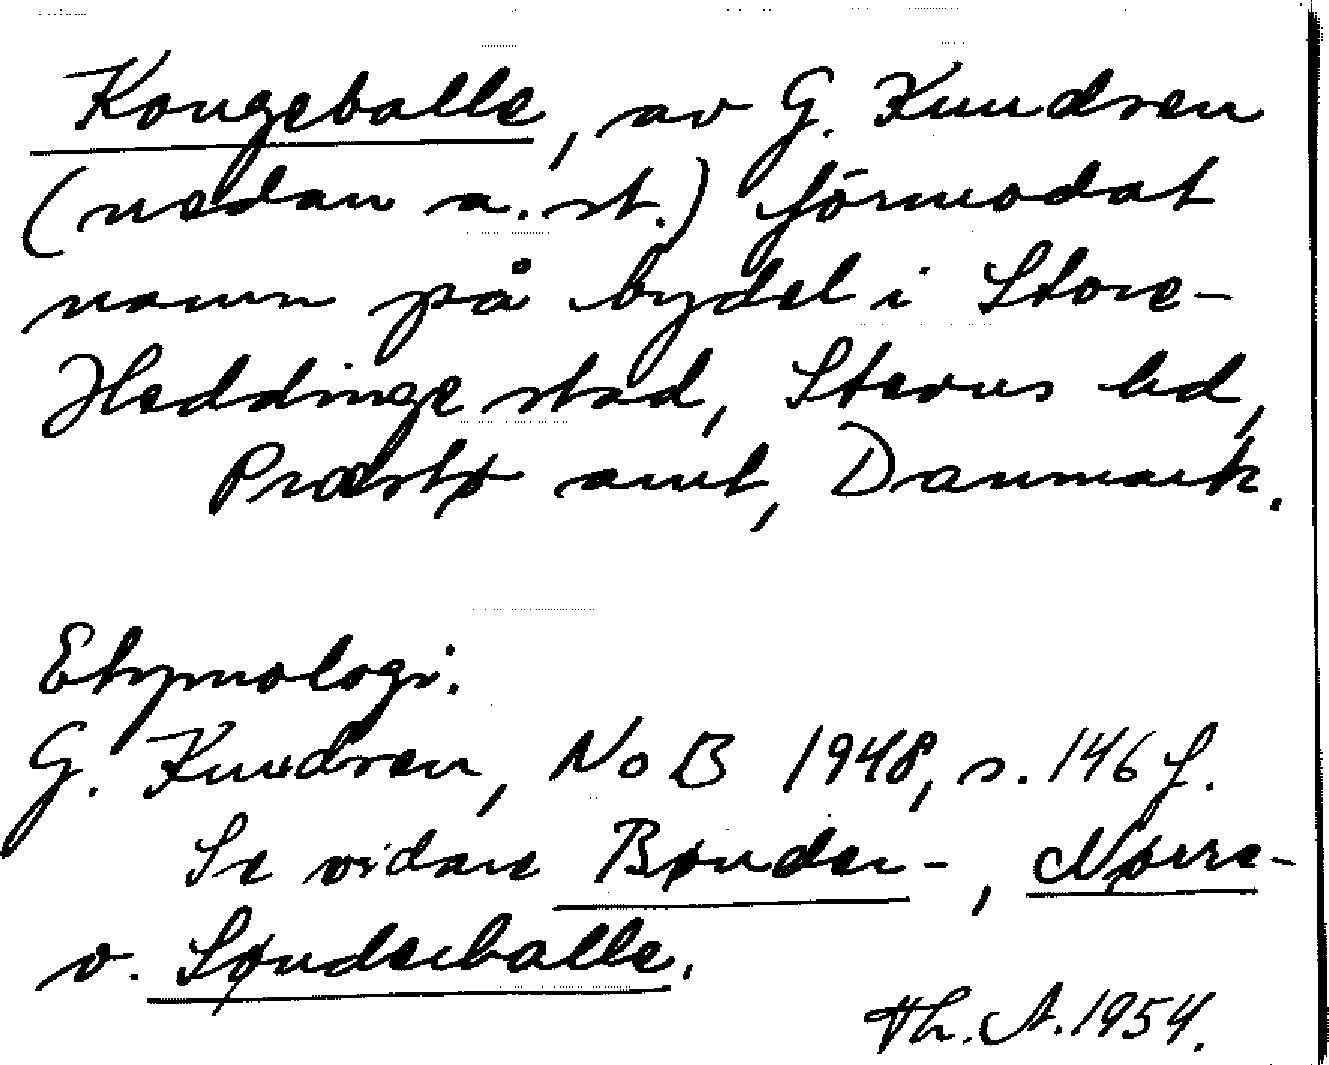 Kongeballe, av G. Knudsen
(nedan a. st.) förmodat
namn på bydel i Store-
Heddinge stad, Stevns hd,
Præstø amt, Danmark.
Etymologi:
G. Knudsen, NoB 1948, s. 146 f.
Se vidare Bønder-, Nørre-
o. Sønderballe.
Th. A. 1954.